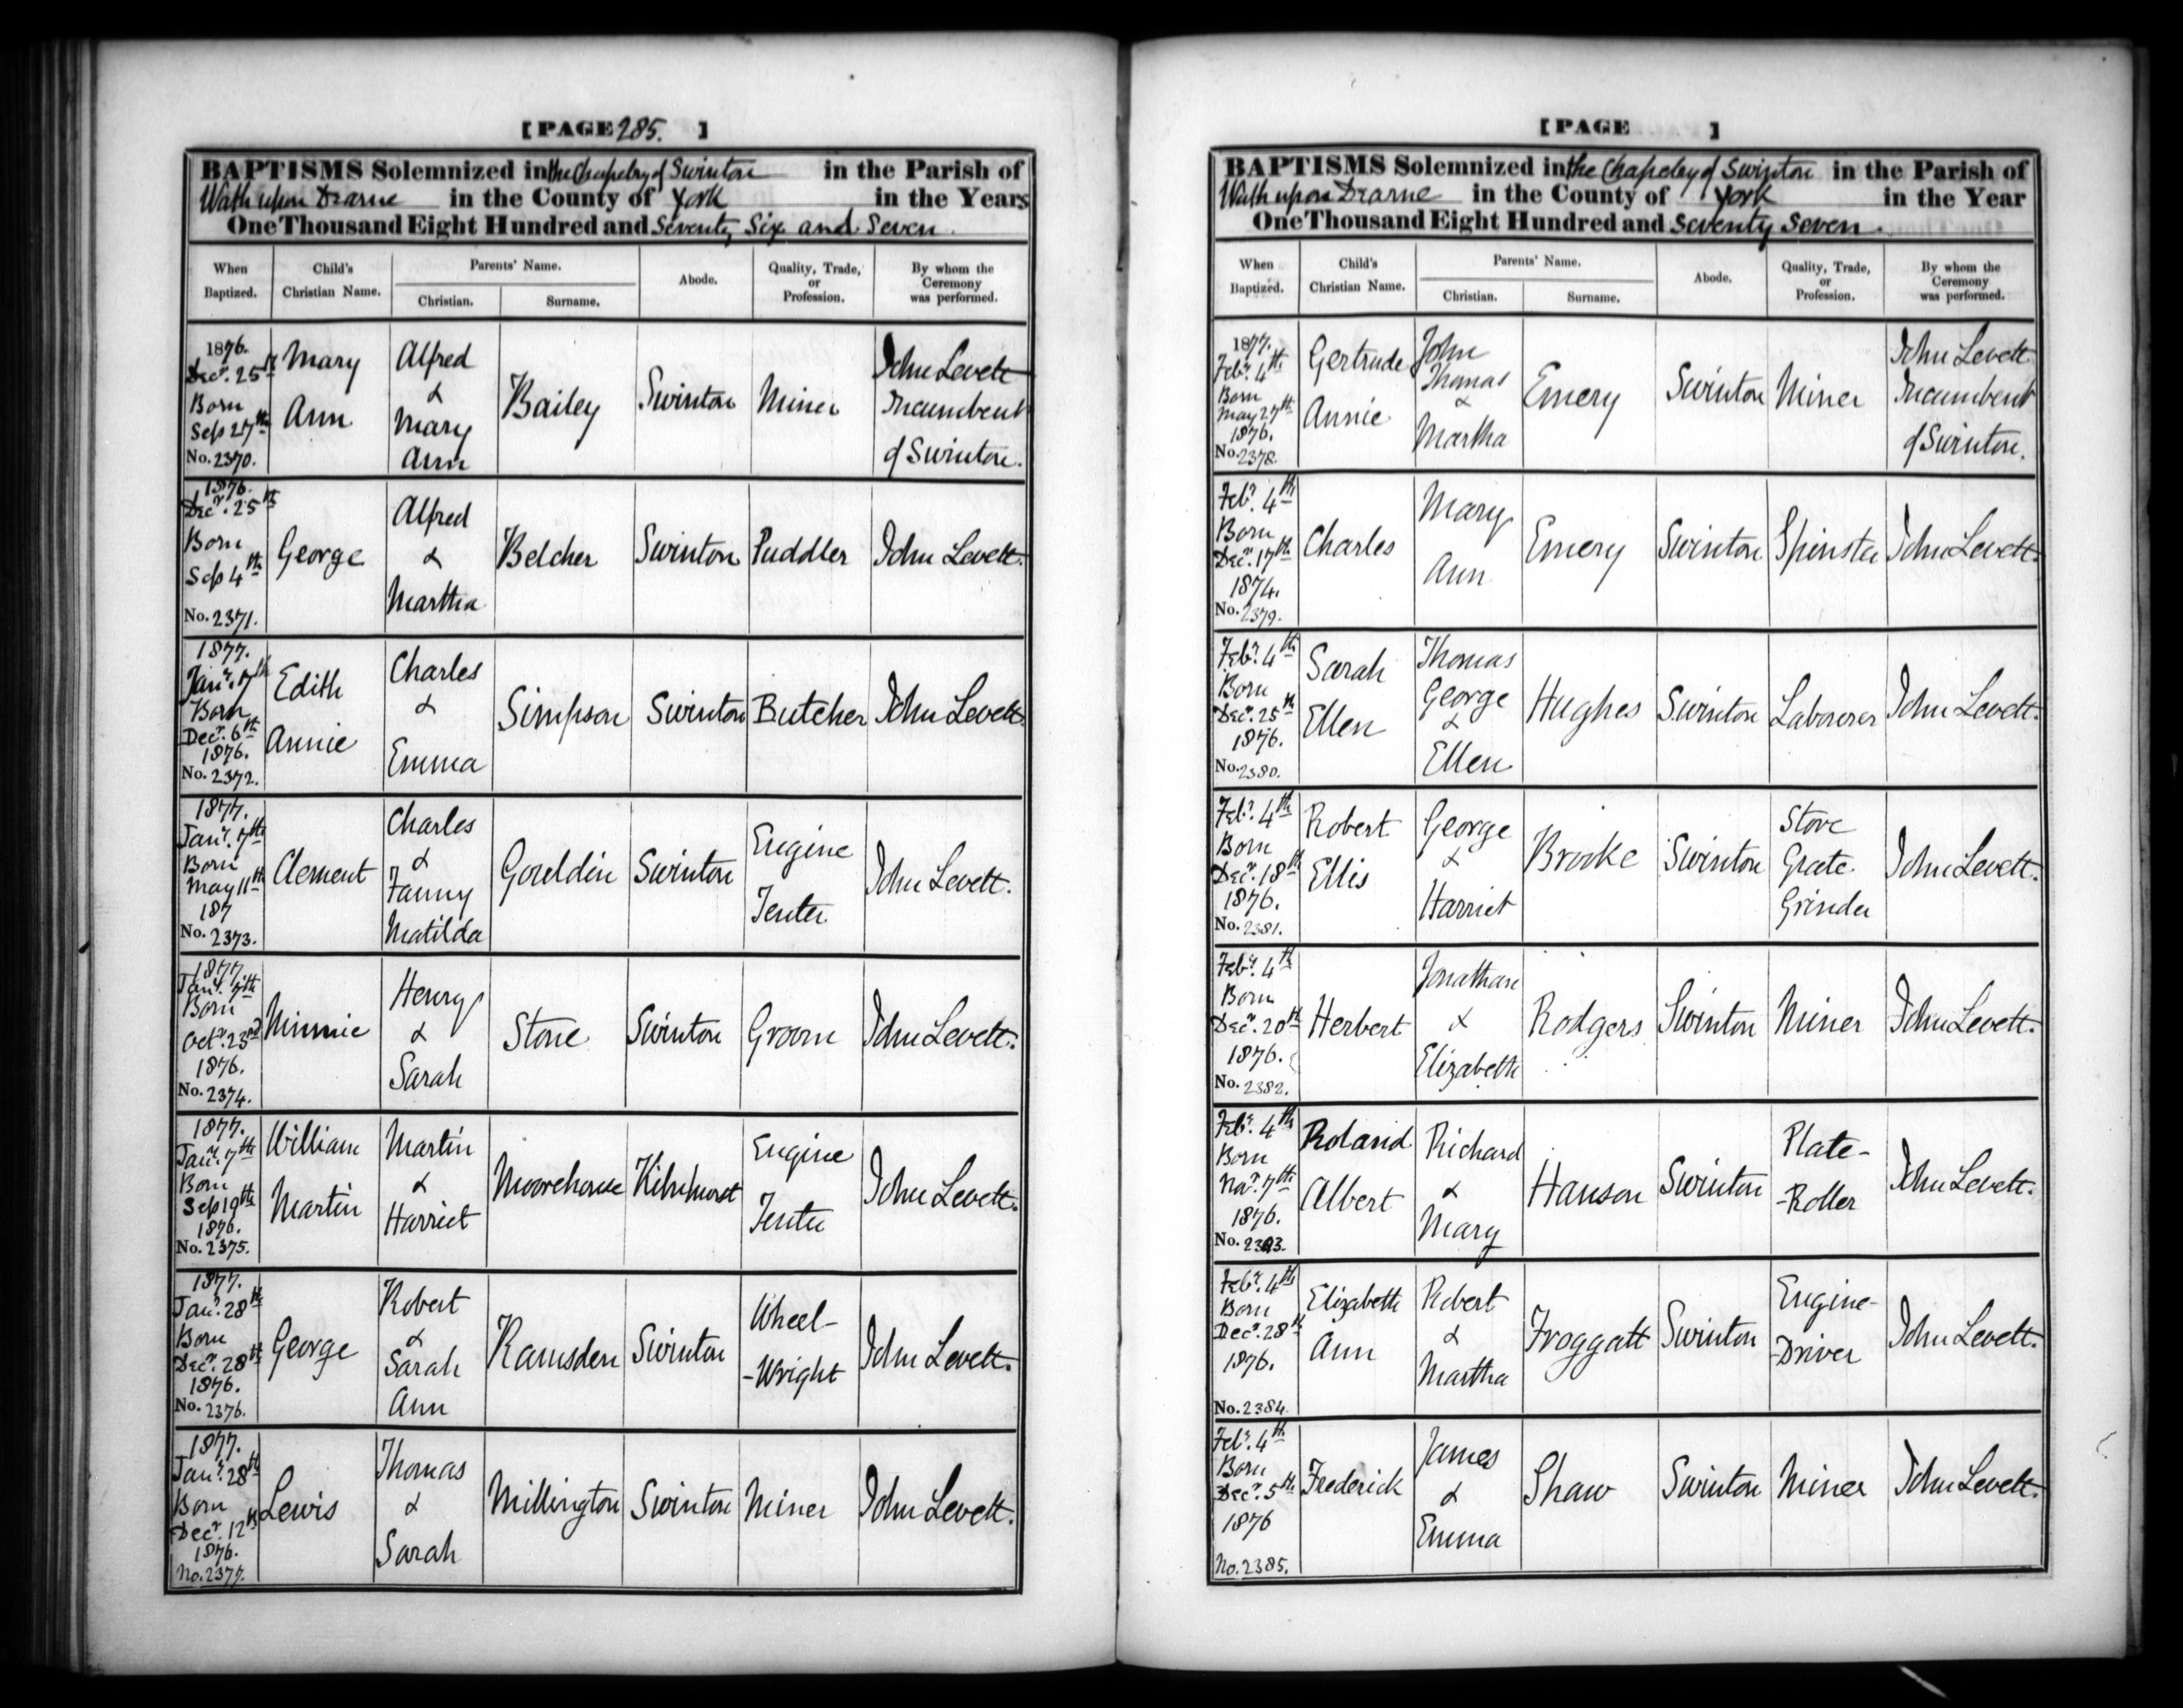 [ PAGE 285. ]
BAPTISMS Solemnized in the Chapelry of Swinton in the Parish of
Wath upon Dearne in the County of York in the Years
One Thousand Eight Hundred and Seventy Six and Seven.
When Baptized. Child's Christian Name. Parents' Name. Christian. Surname. Abode. Quality, Trade, or Profession. By whom the Ceremony was performed.
1876. Decr. 25th Born Sep 27th No. 2370. Mary Ann Alfred & Mary Ann Bailey Swinton Miner John Levett Incumbent of Swinton.
1876. Decr. 25th Born Sep 4th No. 2371. George Alfred & Martha Belcher Swinton Puddler John Levett.
1877. Janr. 7th Born Decr. 6th 1876. No. 2372. Edith Annie Charles & Emma Simpson Swinton Butcher John Levett.
1877. Janr. 7th Born May 11th 187 No. 2373. Clement Charles & Fanny Matilda Gouldin Swinton Engine Tenter John Levett.
1877. Janr. 7th Born Octr. 23rd 1876. No. 2374. Minnie Henry & Sarah Stone Swinton Groom John Levett.
1877. Janr. 7th Born Sep 19th 1876. No. 2375. William Martin Martin & Harriet Moorehouse Kilnhurst Engine Tenter John Levett.
1877. Janr. 28th Born Decr. 28th 1876. No. 2376. George Robert & Sarah Ann Ramsden Swinton Wheel- -Wright John Levett.
1877. Janr. 28th Born Decr. 12th 1876. No. 2377. Lewis Thomas & Sarah Millington Swinton Miner John Levett.
[ PAGE ]
BAPTISMS Solemnized in the Chapelry of Swinton in the Parish of
Wath upon Dearne in the County of York in the Year
One Thousand Eight Hundred and Seventy Seven.
When Baptized. Child's Christian Name. Parents' Name. Christian. Surname. Abode. Quality, Trade, or Profession. By whom the Ceremony was performed.
1877. Febr. 4th Born May 27th 1876. No. 2378. Gertrude Annie John Thomas & Martha Emery Swinton Miner John Levett. Incumbent of Swinton.
Febr. 4th Born Decr. 17th 1874. No. 2379. Charles Mary Ann Emery Swinton Spinster John Levett.
Febr. 4th Born Decr. 25th 1876. No. 2380. Sarah Ellen Thomas George & Ellen Hughes Swinton Laborer John Levett.
Febr. 4th Born Decr. 18th 1876. No. 2381. Robert Ellis George & Harriet Brooke Swinton Stove Grate Grinder John Levett.
Febr. 4th Born Decr. 20th 1876. No. 2382. Herbert Jonathan & Elizabeth Rodgers Swinton Miner John Levett.
Febr. 4th Born Novr. 7th 1876. No. 2383. Roland Albert Richard & Mary Hanson Swinton Plate- -Roller John Levett.
Febr. 4th Born Decr. 28th 1876. No. 2384. Elizabeth Ann Robert & Martha Froggatt Swinton Engine- -Driver John Levett.
Febr. 4th Born Decr. 5th 1876 No. 2385. Frederick James & Emma Shaw Swinton Miner John Levett.